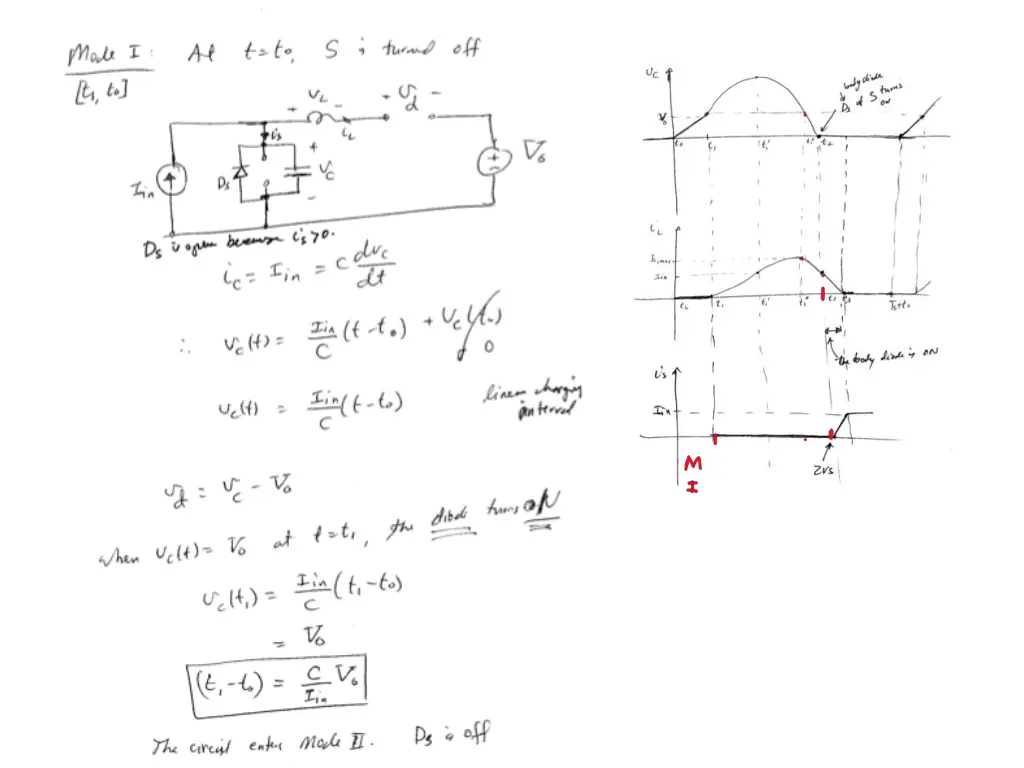 Mode I: At t=t₀, S is turned off
[t₁, t₀]
+ v_L - + v_d -
i_s
i_L
+
D_s
v_c
-
I_in
+
-
V₀
D_s is open because i_s>0.
i_c = I_in = C dv_c/dt
∴ v_c(t) = I_in/C (t-t₀) + v_c(t₀) 0
v_c(t) = I_in/C (t-t₀) linear charging interval
v_d = v_c - V₀
when v_c(t) = V₀ at t=t₁, the diode turns ON
v_c(t₁) = I_in/C (t₁-t₀)
= V₀
(t₁-t₀) = C/I_in V₀
The circuit enter Mode II. D_s is off
v_c
body diode
D_s of S turns
ON
V₀
t₀ t₁ t₁' t₁'' t₂
i_L
I_in
t₀ t₁ t₁' t₁'' t₂ t₃ T_s+t₀
the body diode is ON
i_s
I_in
ZVS
M
I